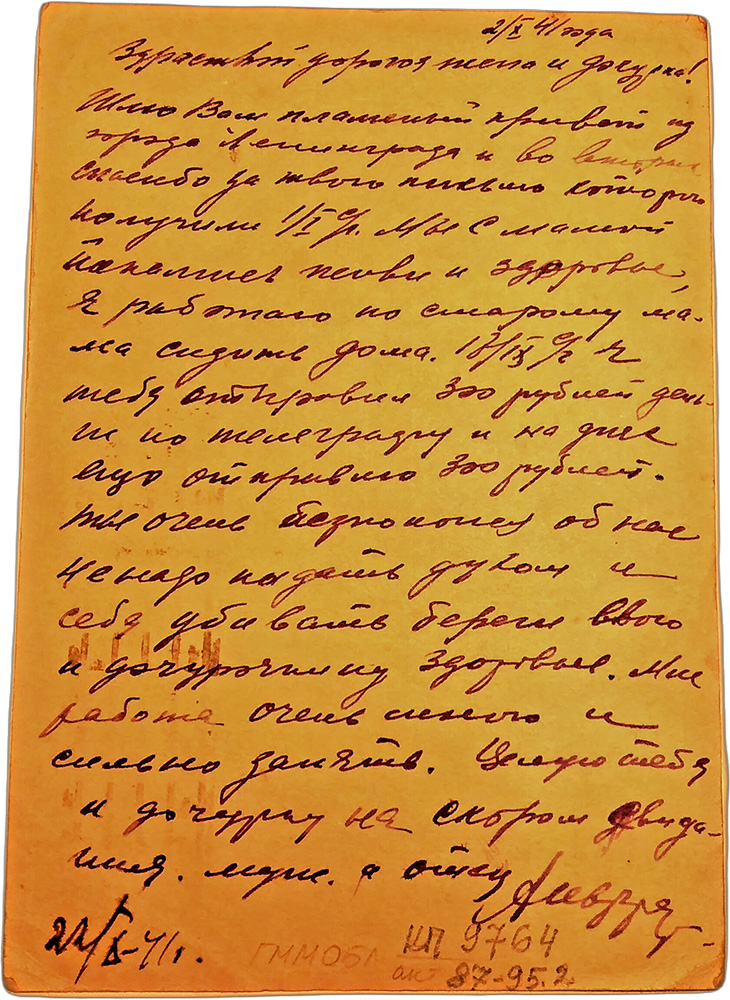 2/X 41 года
Здраствуй дорогоя жена и дочурка!
Шлю Вам пламеный привет из
города Ленинграда и во вторых
спасибо за твого письмо которого
получили 1/X с/г. Мы с мамой
живы и здоровые,
Я работаю по старому ма-
ма сидить дома. 18/IX с/г я
тебе отправил 300 рублей день-
ги по телеграфу и на днях
ещо отправлю 300 рублей.
ты очень об нас
не надо падать духом и
себя убивать береги свого
и дочурочкину здоровье. Мне
работа очень много и
сильно занять. Целую тебя
и дочурку на скором свида-
ния. муж. а отец
22/X-41г.
ГММОБЛ КП 9764
акт 87-95.2